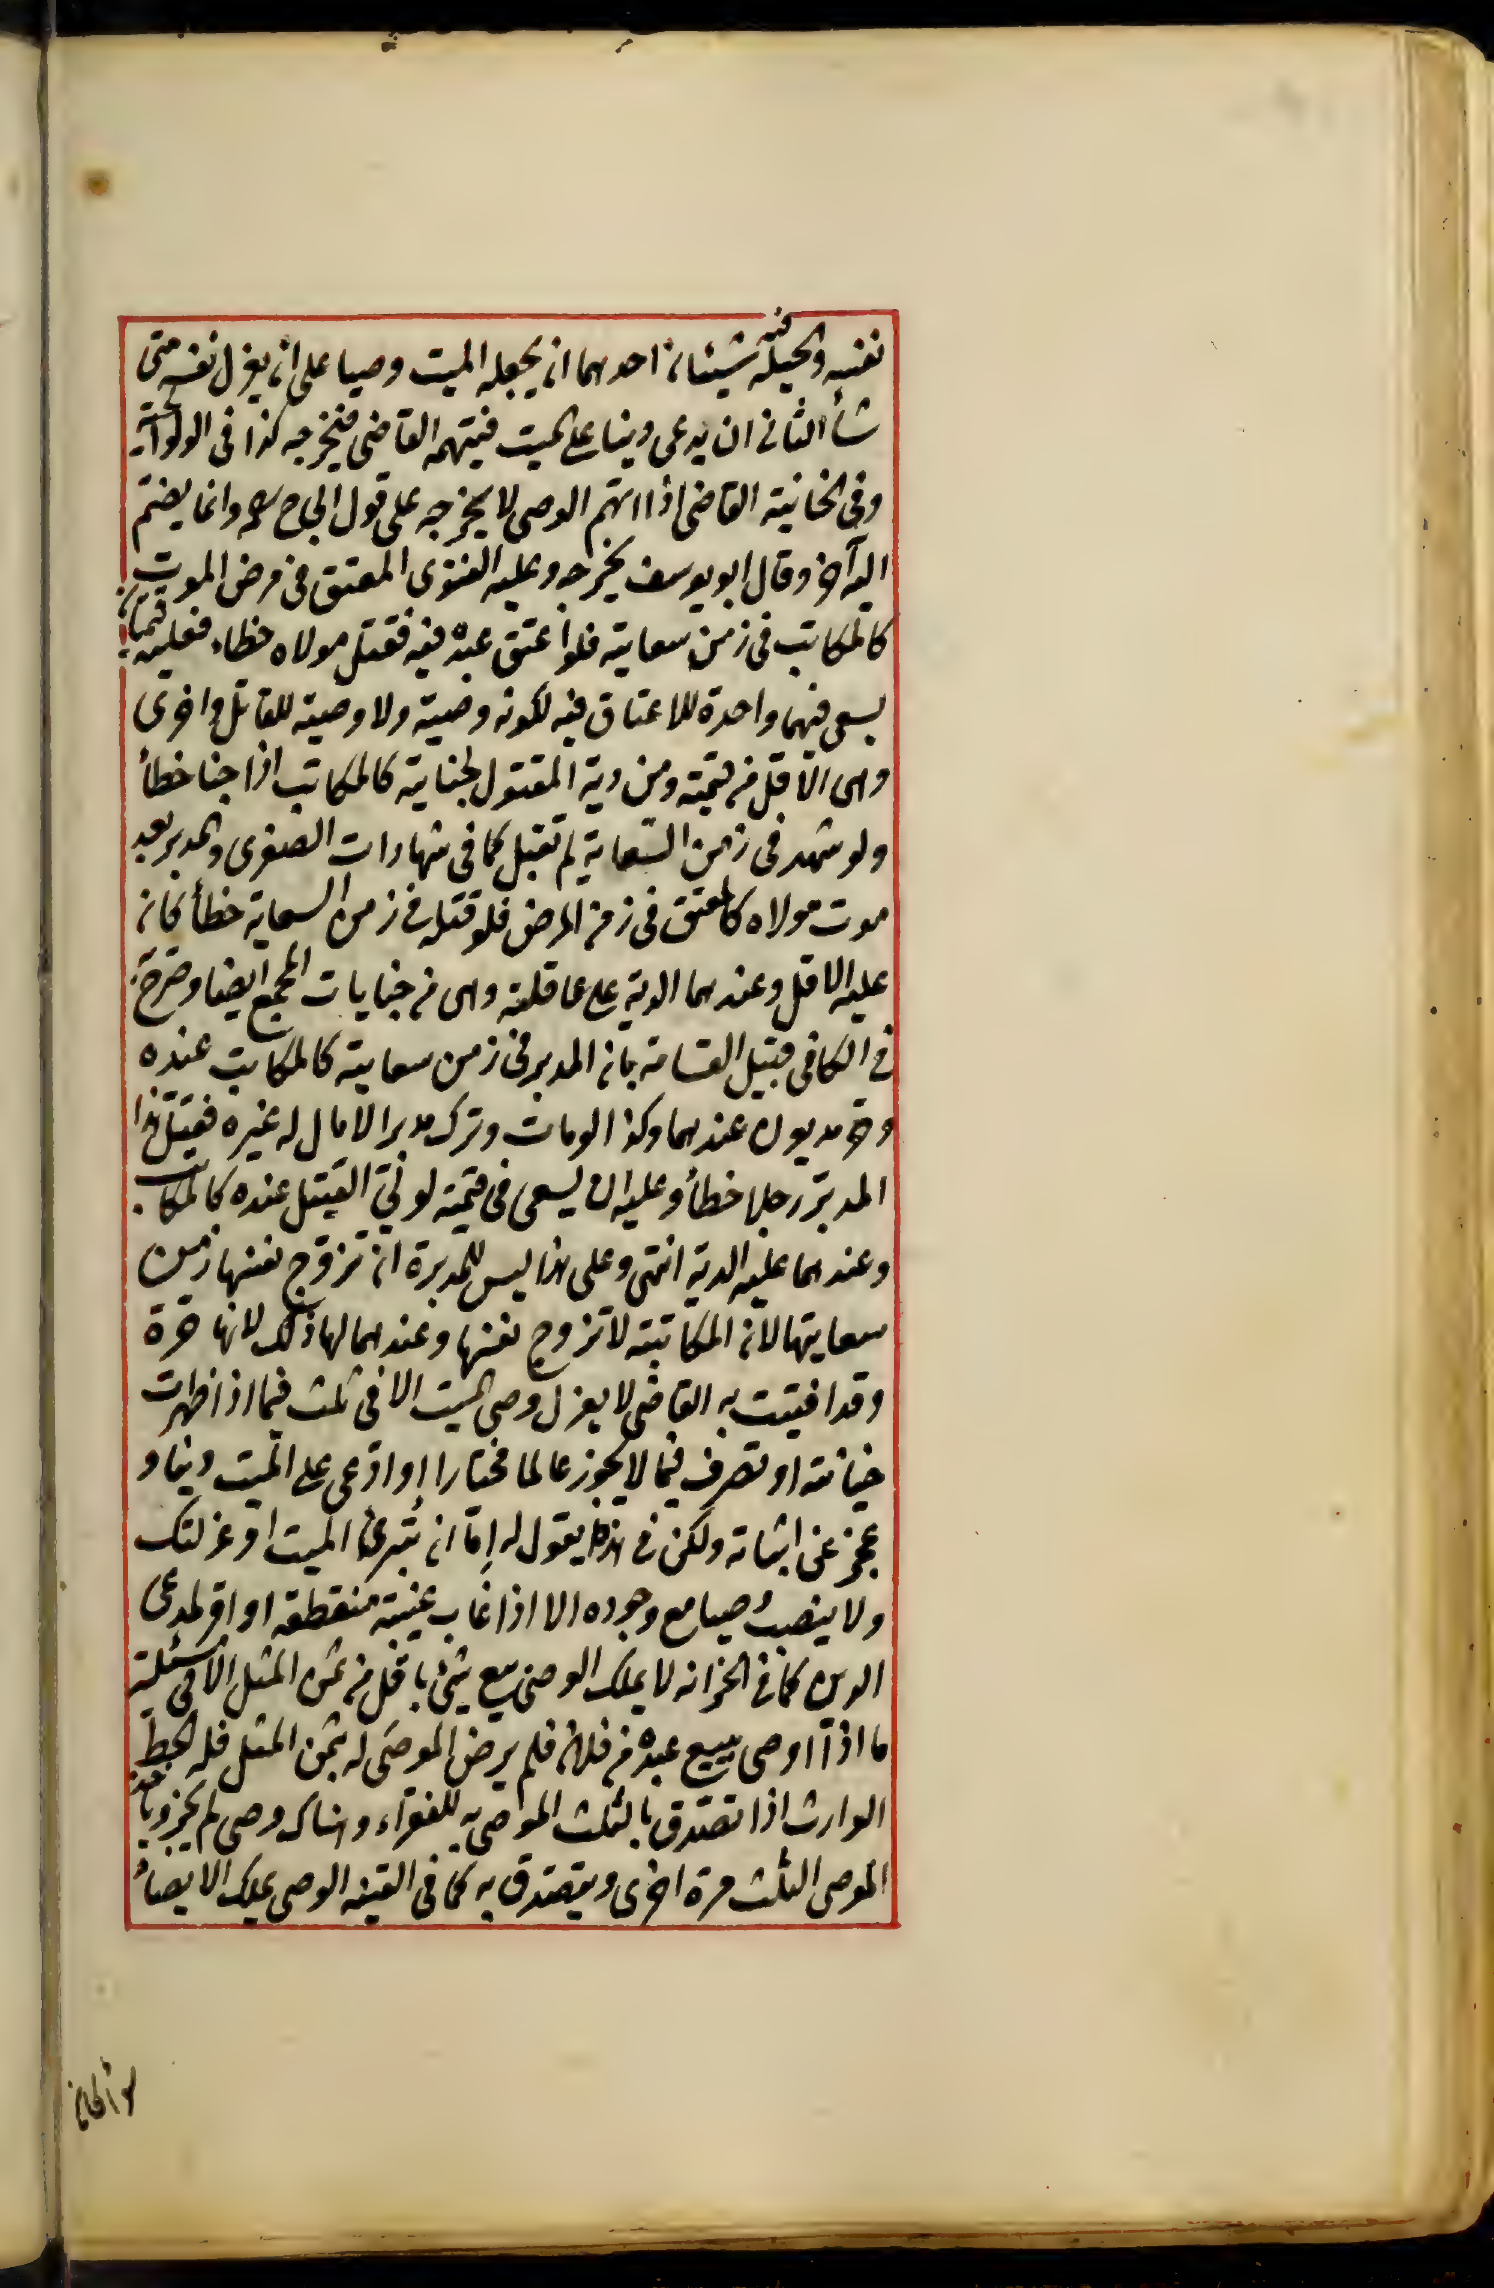 نفسه والحيلة فيه شيئان احدهما ان يجعله الميت وصيا على ان يعزل نفسه متى
شأ الثانى ان يدعى دينا على الميت فيتهمه القاضى فيخرجه كذا فى الولوالجية
وفى الخانية القاضى اذا اتهم الوصى لا يخرجه على قول ابى ح وانما يضم
اليه آخر وقال ابو يوسف يخرجه وعليه الفتوى المعتق فى مرض الموت
كالمكاتب فى زمن سعايته فلو اعتق عبده فيه فقتل مولاه خطاء فعليه قيمتان
يسعى فيهما واحدة للاعتاق فيه لكونه وصية ولا وصية للقاتل واخرى
وهى الاقل من قيمته ومن دية المقتول لجناية كالمكاتب اذا جنا خطأ
ولو شهد فى زمن السّعاية لم تقبل كما فى شهادات الصغرى والمدبر بعد
موت مولاه كالمعتق فى زمن المرض فلو قتله فى زمن السعاية خطأ كان
عليه الاقل وعندهما الدية على عاقلته وهى من جنايات المجمع ايضا وصرّح
فى الكافى قبيل القسامة بان المدبر فى زمن سعايته كالمكاتب عنده
وحر مديون عندهما وكذا لو مات وترك مدبرا لا مال له غيره فقتل هذا
المدبّر رجلا خطأ وعليه ان يسعى فى قيمته لولىّ القتيل عنده كالمكاتب
وعندهما عليه الدية انتهى وعلى هذا ليس للمدبرة ان تزوّج نفسها زمن
سعايتها لان المكاتبة لا تزوج نفسها وعندهما لها ذلك لانها حرة
وقد افتيت به القاضى لا يعزل وصى الميت الا فى ثلث فيما اذا ظهرت
خيانته او تصرف فيما لا يجوز عالما مختارا او ادّعى على الميت دينا و
عجز عن اثباته ولكن فى هذه يقول له إمّا ان تُبرئ الميت او عزلتك
ولا ينصب وصيا مع وجوده الا اذا غاب غيبة منقطعة او اقر لمدعى
الدين كما فى الخزانه لا يملك الوصى بيع شئ باقل من ثمن المثل الا فى مسئلة
ما اذا اوصى ببيع عبده من فلان فلم يرض الموصَى له بثمن المثل فله الحط
الوارث اذا تصّدق بالثلث الموصى به للفقرآء وهناك وصى لم يجز وياخذ
الموصى الثلث مرة اخرى ويتصّدق به كما فى القنية الوصى يملك الايصأ